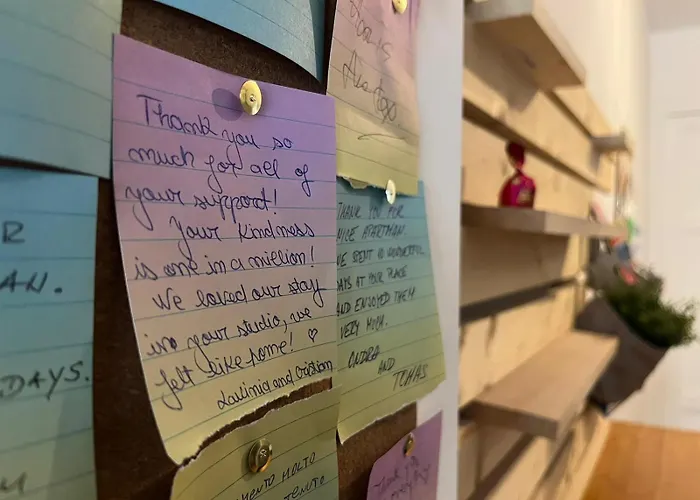 Thank you so
much for all of
your support!
Your kindness
is one in a million!
We loved our stay
in your studio, we
felt like home! ♡
Lavinia and Cristian
THANK YOU FOR
NICE APARTMAN.
WE SPENT 10 WONDERFUL
DAYS AT YOUR PLACE
AND ENJOYED THEM
VERY MUCH.
ONDRA
AND
TOMAS
AN.
DAYS.
MOLTO